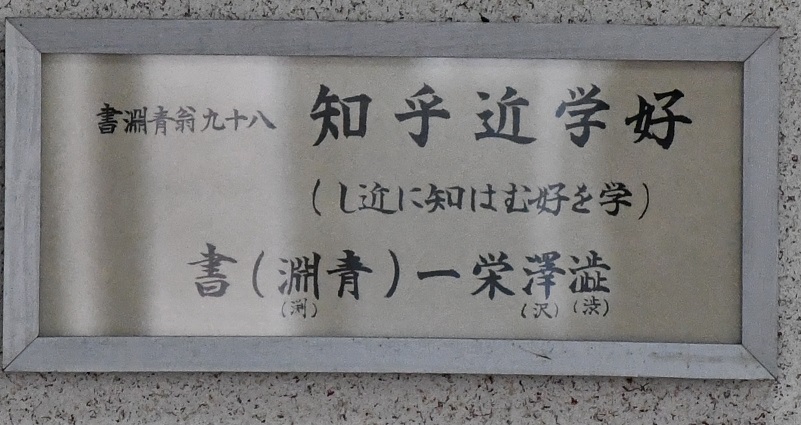 好学近乎知 八十九翁青淵書
(学を好むは知に近し)
澁澤栄一(青淵)書
(渋)(沢)(渕)